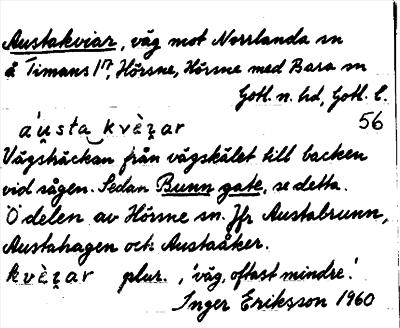 Austakviar, väg mot Norrlanda sn
å Timans 1¹⁷, Hörsne, Hörsne med Bara sn
Gotl. n. hd, Gotl. l.
56
a'u̯sta‿kvὲʐar
Vägsträckan från vägskälet till backen
vid sågen. Sedan Bunn gate, se detta.
Ö delen av Hörsne sn. Jfr Austabrunn,
Austahagen och Austaåker.
kvὲʐar plur., 'väg, oftast mindre'.
Inger Eriksson 1960